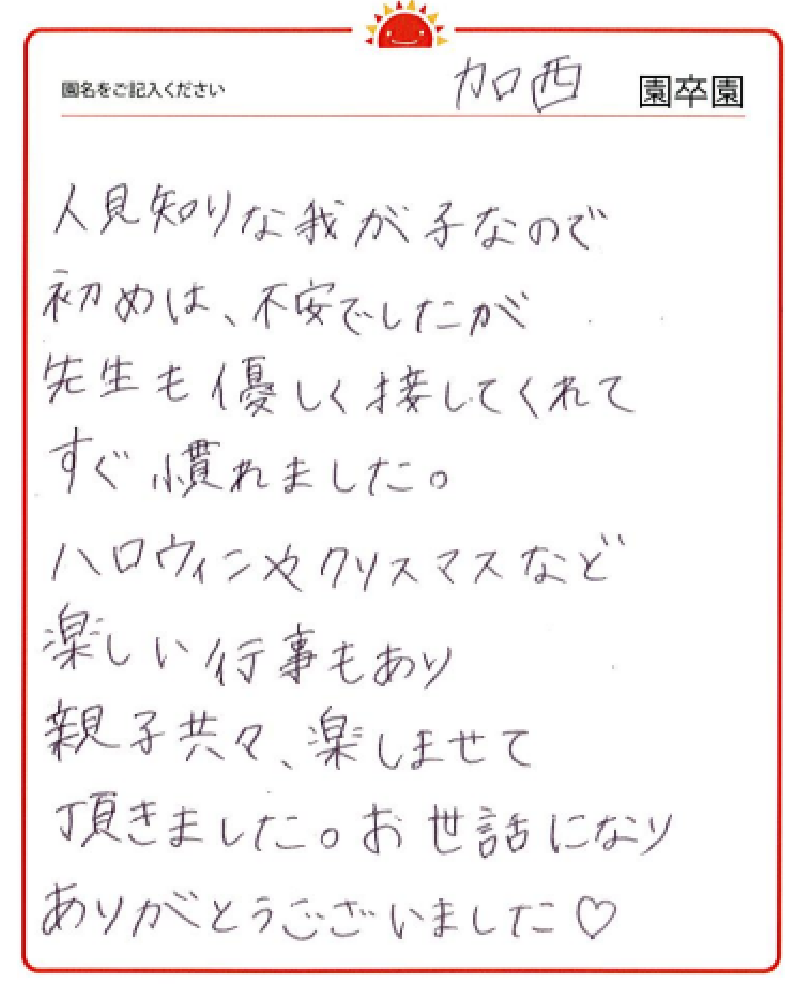 園名をご記入ください 加西 園卒園
人見知りな我が子なので
初めは、不安でしたが
先生も優しく接してくれて
すぐ慣れました。
ハロウィンやクリスマスなど
楽しい行事もあり
親子共々、楽しませて
頂きました。お世話になり
ありがとうございました♡